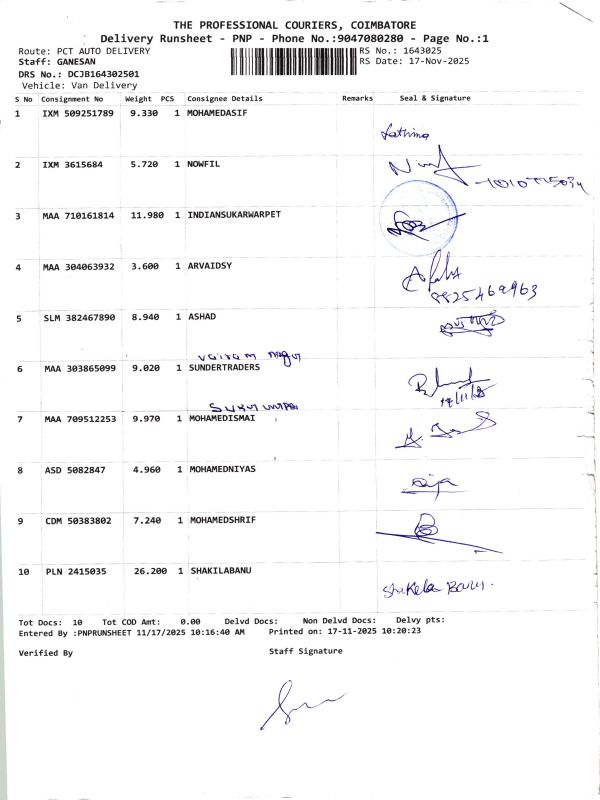 THE PROFESSIONAL COURIERS, COIMBATORE
Delivery Runsheet - PNP - Phone No.:9047080280 - Page No.:1
Route: PCT AUTO DELIVERY RS No.: 1643025
Staff: GANESAN RS Date: 17-Nov-2025
DRS No.: DCJB164302501
Vehicle: Van Delivery
S No Consignment No Weight PCS Consignee Details Remarks Seal & Signature
1 IXM 509251789 9.330 1 MOHAMEDASIF
Fathima
2 IXM 3615684 5.720 1 NOWFIL
3 MAA 710161814 11.980 1 INDIANSUKARWARPET
4 MAA 304063932 3.600 1 ARVAIDSY
8825469963
5 SLM 382467890 8.940 1 ASHAD
vairam
6 MAA 303865099 9.020 1 SUNDERTRADERS
17/11/25
7 MAA 709512253 9.970 1 MOHAMEDISMAI
8 ASD 5082847 4.960 1 MOHAMEDNIYAS
9 CDM 50383802 7.240 1 MOHAMEDSHRIF
10 PLN 2415035 26.200 1 SHAKILABANU
Shakela Banu.
Tot Docs: 10 Tot COD Amt: 0.00 Delvd Docs: Non Delvd Docs: Delvy pts:
Entered By :PNPRUNSHEET 11/17/2025 10:16:40 AM Printed on: 17-11-2025 10:20:23
Verified By Staff Signature